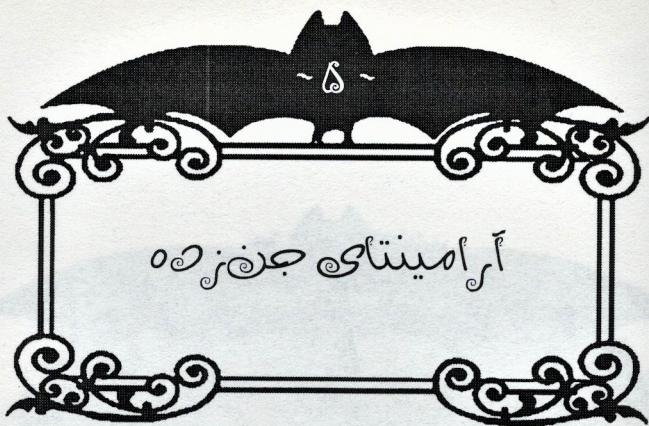 ~ ۵ ~
آرامینتای جن‌زده